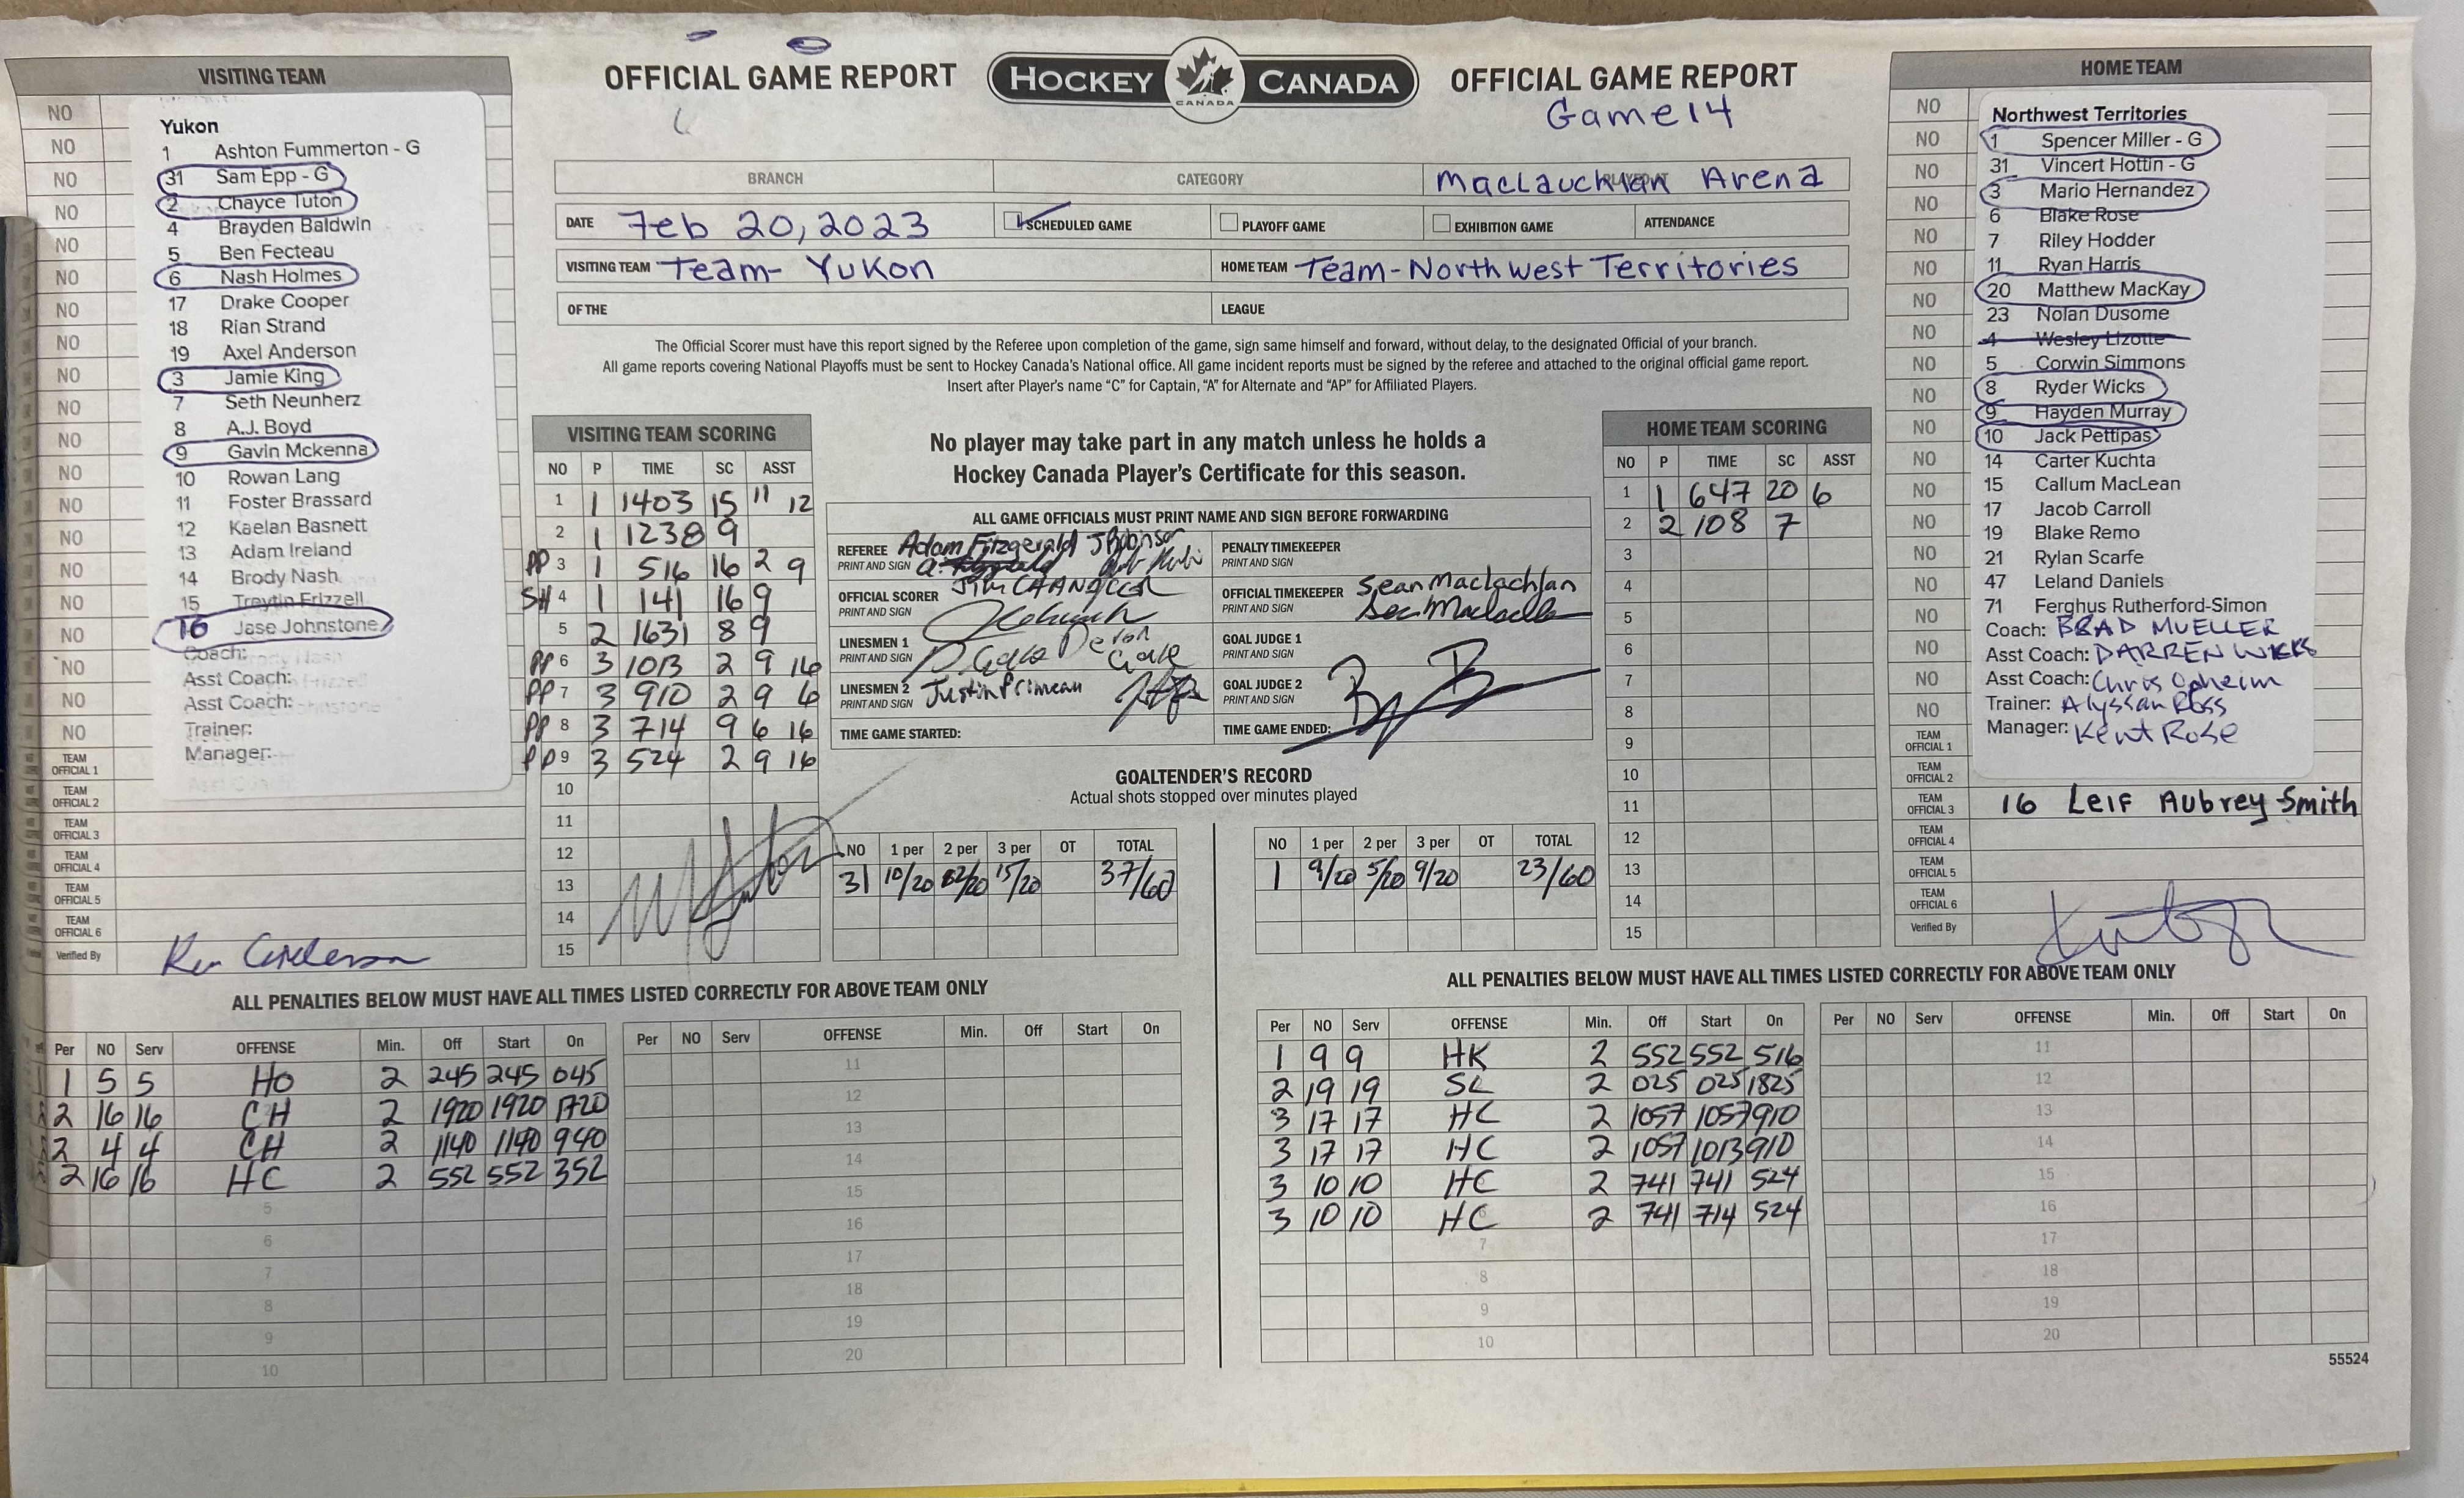 OFFICIAL GAME REPORT
HOCKEY CANADA
CANADA
OFFICIAL GAME REPORT
Game 14
BRANCH
CATEGORY
PLAYED AT
MacLauchlan Arena
DATE Feb 20, 2023
SCHEDULED GAME
PLAYOFF GAME
EXHIBITION GAME
ATTENDANCE
VISITING TEAM Team- Yukon
HOME TEAM Team-Northwest Territories
OF THE
LEAGUE
The Official Scorer must have this report signed by the Referee upon completion of the game, sign same himself and forward, without delay, to the designated Official of your branch.
All game reports covering National Playoffs must be sent to Hockey Canada's National office. All game incident reports must be signed by the referee and attached to the original official game report.
Insert after Player's name "C" for Captain, "A" for Alternate and "AP" for Affiliated Players.
VISITING TEAM
NO
Yukon
1 Ashton Fummerton - G
31 Sam Epp - G
2 Chayce Tuton
4 Brayden Baldwin
5 Ben Fecteau
6 Nash Holmes
17 Drake Cooper
18 Rian Strand
19 Axel Anderson
3 Jamie King
7 Seth Neunherz
8 A.J. Boyd
9 Gavin Mckenna
10 Rowan Lang
11 Foster Brassard
12 Kaelan Basnett
13 Adam Ireland
14 Brody Nash
15 Treytin Frizzell
16 Jase Johnstone
Coach:
Asst Coach:
Asst Coach:
Trainer:
Manager:
TEAM OFFICIAL 1
TEAM OFFICIAL 2
TEAM OFFICIAL 3
TEAM OFFICIAL 4
TEAM OFFICIAL 5
TEAM OFFICIAL 6
Verified By
VISITING TEAM SCORING
NO P TIME SC ASST
1 1 1403 15 11 12
2 1 1238 9
PP 3 1 516 16 2 9
SH 4 1 141 16 9
5 2 1631 8 9
PP 6 3 1013 2 9 16
PP 7 3 910 2 9 6
PP 8 3 714 9 6 16
PP 9 3 524 2 9 16
10
11
12
13
14
15
No player may take part in any match unless he holds a
Hockey Canada Player's Certificate for this season.
ALL GAME OFFICIALS MUST PRINT NAME AND SIGN BEFORE FORWARDING
REFEREE Adam Fitzgerald J Robinson
PRINT AND SIGN
PENALTY TIMEKEEPER
PRINT AND SIGN
OFFICIAL SCORER Jim CHANDLER
PRINT AND SIGN
OFFICIAL TIMEKEEPER Sean Maclachlan
PRINT AND SIGN
LINESMEN 1 Devon Gale
PRINT AND SIGN
GOAL JUDGE 1
PRINT AND SIGN
LINESMEN 2 Justin Primeau
PRINT AND SIGN
GOAL JUDGE 2
PRINT AND SIGN
TIME GAME STARTED:
TIME GAME ENDED:
GOALTENDER'S RECORD
Actual shots stopped over minutes played
NO 1 per 2 per 3 per OT TOTAL
31 10/20 12/20 15/20 37/60
NO 1 per 2 per 3 per OT TOTAL
1 9/20 5/20 9/20 23/60
HOME TEAM SCORING
NO P TIME SC ASST
1 1 647 20 6
2 2 108 7
3
4
5
6
7
8
9
10
11
12
13
14
15
HOME TEAM
NO
Northwest Territories
1 Spencer Miller - G
31 Vincert Hottin - G
3 Mario Hernandez
6 Blake Rose
7 Riley Hodder
11 Ryan Harris
20 Matthew MacKay
23 Nolan Dusome
4 Wesley Lizotte
5 Corwin Simmons
8 Ryder Wicks
9 Hayden Murray
10 Jack Pettipas
14 Carter Kuchta
15 Callum MacLean
17 Jacob Carroll
19 Blake Remo
21 Rylan Scarfe
47 Leland Daniels
71 Ferghus Rutherford-Simon
Coach: BRAD MUELLER
Asst Coach: DARREN WICKS
Asst Coach: Chris Opheim
Trainer: Alyssan Ross
Manager: Kent Rose
TEAM OFFICIAL 1
TEAM OFFICIAL 2
TEAM OFFICIAL 3 16 Leif Aubrey-Smith
TEAM OFFICIAL 4
TEAM OFFICIAL 5
TEAM OFFICIAL 6
Verified By
ALL PENALTIES BELOW MUST HAVE ALL TIMES LISTED CORRECTLY FOR ABOVE TEAM ONLY
Per NO Serv OFFENSE Min. Off Start On
1 5 5 HO 2 245 245 045
2 16 16 CH 2 1920 1920 1720
2 4 4 CH 2 1140 1140 940
2 16 16 HC 2 552 552 352
5
6
7
8
9
10
Per NO Serv OFFENSE Min. Off Start On
11
12
13
14
15
16
17
18
19
20
ALL PENALTIES BELOW MUST HAVE ALL TIMES LISTED CORRECTLY FOR ABOVE TEAM ONLY
Per NO Serv OFFENSE Min. Off Start On
1 9 9 HK 2 552 552 516
2 19 19 SL 2 025 025 1825
3 17 17 HC 2 1057 1057 910
3 17 17 HC 2 1057 1013 910
3 10 10 HC 2 741 741 524
3 10 10 HC 2 741 714 524
7
8
9
10
Per NO Serv OFFENSE Min. Off Start On
11
12
13
14
15
16
17
18
19
20
55524